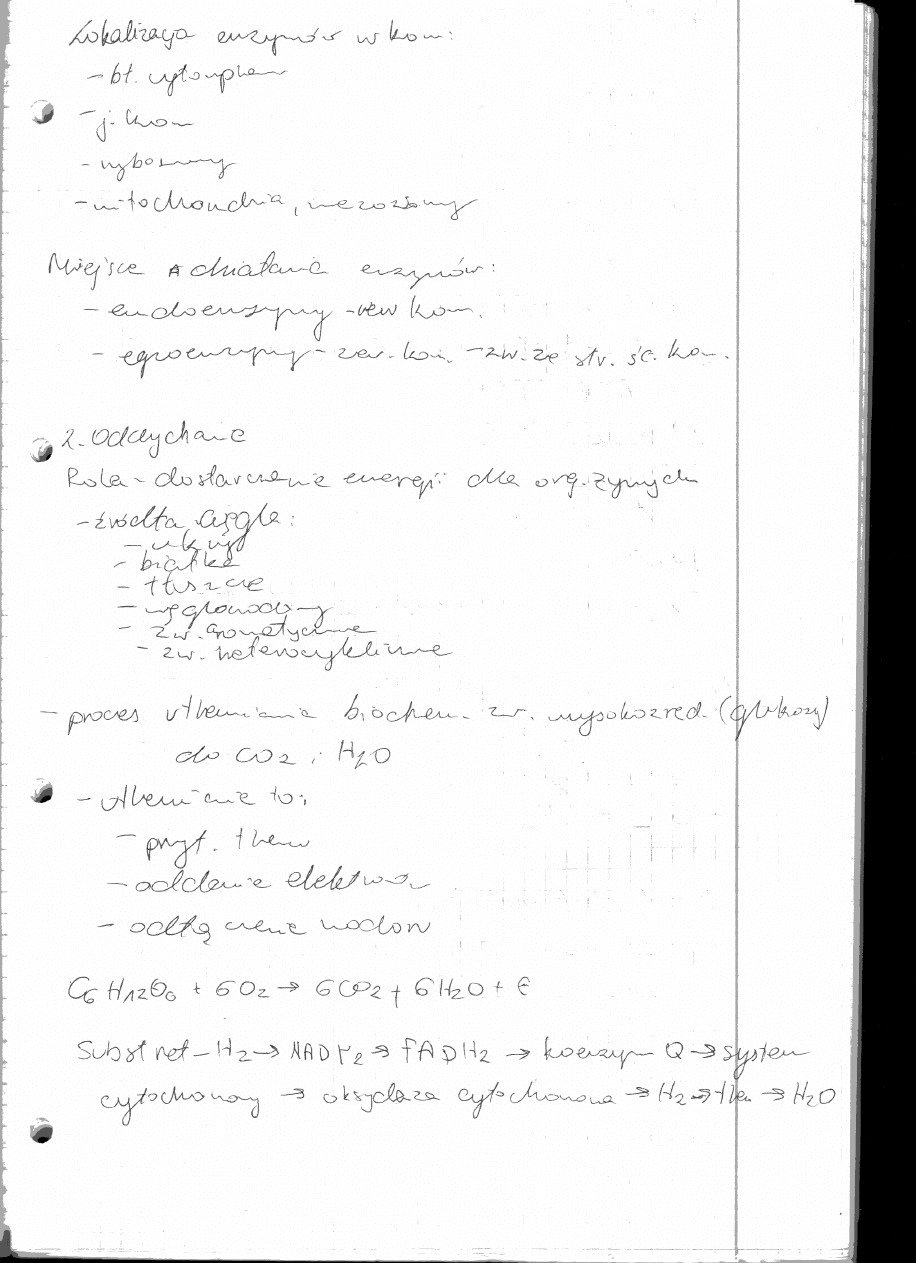 Lokalizacja enzymów w kom:
- bł. cytoplazm
- j. kom
- rybosomy
- mitochondria, mezosomy
Miejsce działania enzymów:
- endoenzymy - wew kom.
- egzoenzymy - zew. kom. - zw. ze str. śc. kom.
2. Oddychanie
Rola - dostarczenie energii dla org. żywych
- źródła węgla:
- cukry
- białka
- tłuszcze
- węglowodory
- zw. aromatyczne
- zw. heterocykliczne
- proces utleniania biochem. zw. wysokozred. (glukozy)
do CO2 i H2O
- utlenianie to:
- przył. tlenu
- oddanie elektronów
- odłączenie wodoru
C6H12O6 + 6O2 → 6CO2 + 6H2O + E
Substrat - H2 → NADH2 → FADH2 → koenzym Q → system
cytochromowy → oksydaza cytochromowa → H2 → tlen → H2O